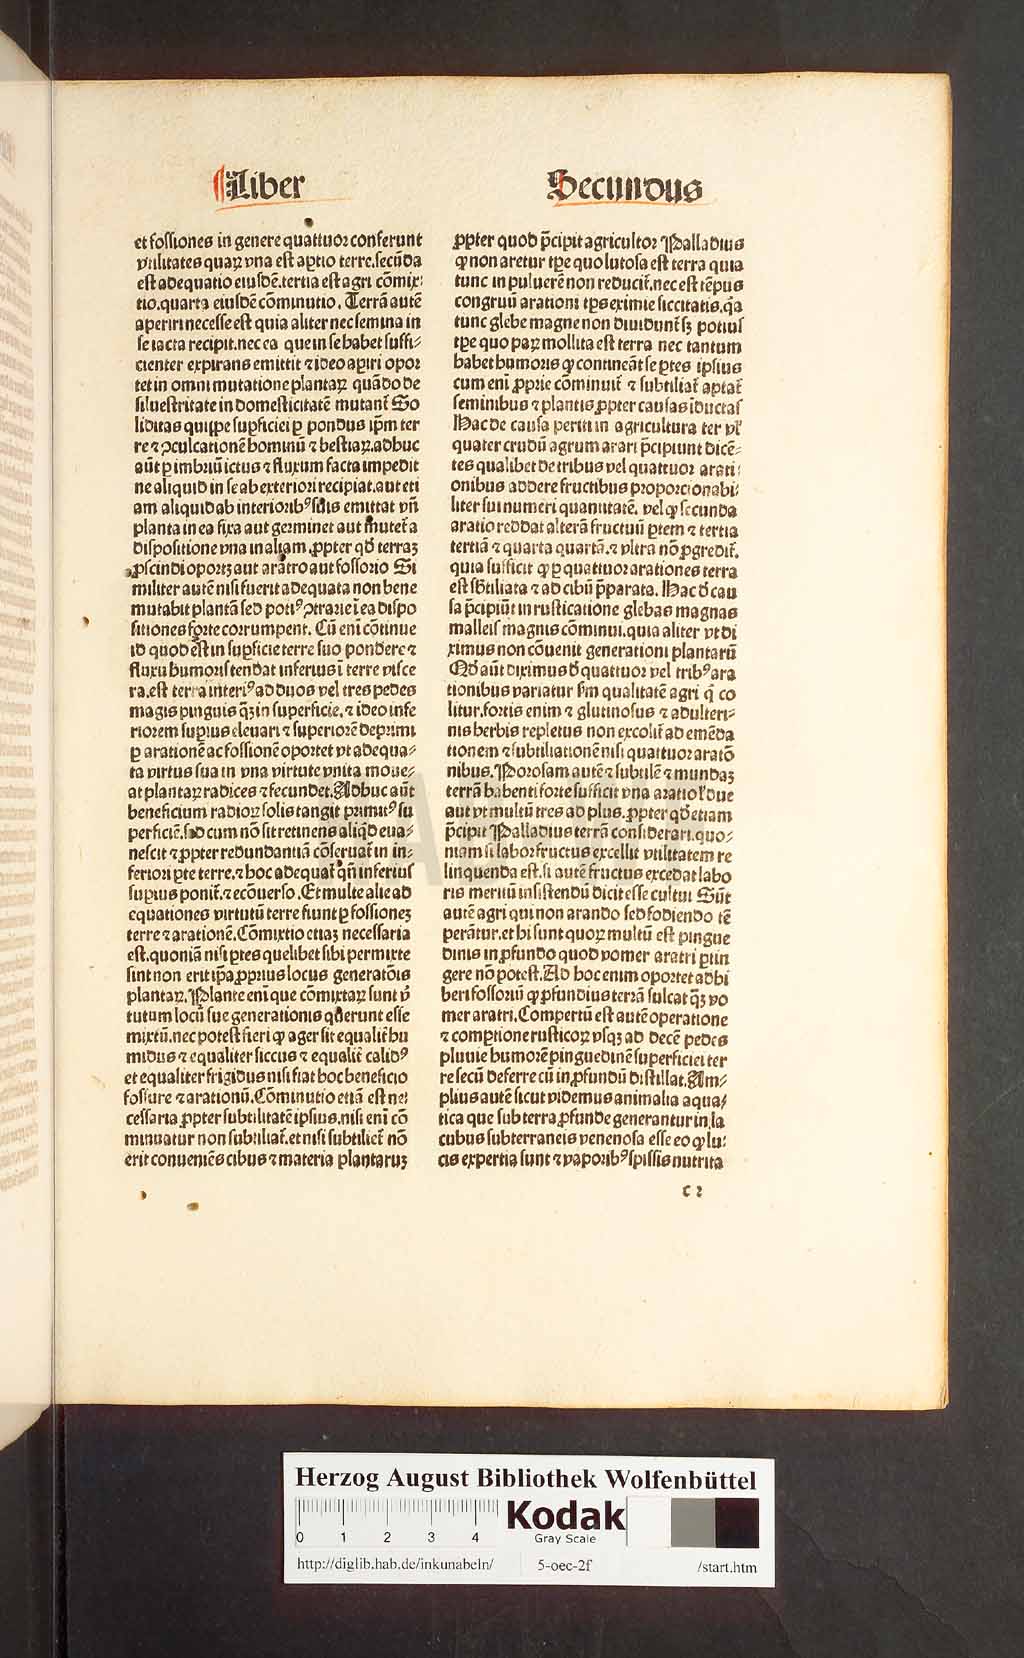 Liber
et fossiones in genere quattuor conferunt
vtilitates quaꝝ vna est aptio terre.secūda
est adequatio eiusdē.tertia est agri cōmix⸗
tio.quarta eiusdē cōminutio. Terrā autē
aperiri necesse est quia aliter nec semina in
se iacta recipit.nec ea que in se habet suffi⸗
cienter expirans emittit ⁊ ideo apiri opor
tet in omni mutatione plantaꝝ quādo de
siluestritate in domesticitatē mutant̄ So
liditas quippe supficiei ꝑ pondus ip̄m ter
re ⁊ ꝯculcationē hominū ⁊ bestiaꝝ.adhuc
aūt ꝑ imbriū ictus ⁊ fluxum facta impedit
ne aliquid in se ab exteriori recipiat.aut eti
am aliquid ab interioribꝰ suis emittat vn̄
planta in ea fixa aut germinet aut mutet̄ a
dispositione vna in aliam ꝓpter qd̄ terraꝫ
ꝓscindi oportꝫ aut aratro aut fossorio Si
militer autē nisi fuerit adequata non bene
mutabit plantā sed potiꝰ ꝯtrarie ī ea dispo
sitiones forte corrumpent. Cū eni cōtinue
id quod est in supficie terre suo pondere ⁊
fluxu humoris tendat inferius ī terre visce
ra.est terra interiꝰ ad duos vel tres pedes
magis pinguis qꝫ in superficie.⁊ ideo infe
riorem supius eleuari ⁊ superiorē deprimi
ꝑ arationē ac fossionē oportet vt adequa⸗
ta virtus sua in vna virtute vnita moue⸗
at plantaꝝ radices ⁊ fecundet. Adhuc aūt
beneficium radioꝝ solis tangit primitꝰ su
perficiē.sed cum nō sit retinens aliqd eua⸗
nescit ⁊ ꝓpter redundantiā cōseruat̄ in in⸗
feriori pte terre.⁊ hoc adequat̄ qn̄ inferius
supius ponit̄.⁊ ecōuerso. Et multe alie ad
equationes virtutū terre fiunt ꝑ fossioneꝫ
terre ⁊ arationē. Cōmixtio etiaꝫ necessaria
est.quoniā nisi ptes quelibet sibi permixte
sint non erit ipa ꝓprius locus generatōis
plantaꝝ. Plante eni que cōmixtaꝝ sunt v̄
tutum locū sue generationis querunt esse
mixtū.nec potest fieri ꝙ ager sit equalit̄ hu
midus ⁊ equaliter siccus ⁊ equalit̄ calidꝰ
et equaliter frigidus nisi fiat hoc beneficio
fossure ⁊ arationū. Cōminutio etiā est ne⸗
cessaria ꝓpter subtilitatē ipsius.nisi eni cō
minuatur non subtiliat̄.et nisi subtiliet̄ nō
erit conueniēs cibus ⁊ materia plantaruꝫ
Secundus
ꝓpter quod p̄cipit agricultor Palladius
ꝙ non aretur tpe quo lutosa est terra quia
tunc in puluerē non reducit̄.nec est tēpus
congruū arationi tps eximie siccitatis.qa
tunc glebe magne non diuidunt̄ sꝫ potius
tpe quo paꝝ mollita est terra nec tantum
habet humoris ꝙ contineāt se ptes ipsius
cum eni ꝓprie cōminuit̄ ⁊ subtiliat̄ aptat̄
seminibus ⁊ plantis ꝓpter causas īductas
Hac de causa periti in agricultura ter vl̓
quater crudū agrum arari p̄cipiunt dicē⸗
tes qualibet de tribus vel quattuor arati⸗
onibus addere fructibus proporcionabi⸗
liter sui numeri quantitatē. vel ꝙ secunda
aratio reddat alterā fructuū ptem ⁊ tertia
tertiā ⁊ quarta quartā.⁊ vltra nō ꝓgredit̄.
quia sufficit ꝙ ꝑ quattuor arationes terra
est sbtiliata ⁊ ad cibū p̄parata. Hac d̄ cau
sa p̄cipiūt in rusticatione glebas magnas
malleis magnis cōminui.quia aliter vt di
ximus non cōuenit generationi plantarū
Qd̄ aūt diximus d̄ quattuor vel tribꝰ ara
tionibus variatur sm̄ qualitatē agri q̄ co
litur.fortis enim ⁊ glutinosus ⁊ adulteri⸗
nis herbis repletus non excolit̄ ad emēda
tionem ⁊ subtiliationē nisi quattuor aratō
nibus. Porosam autē ⁊ subtilē ⁊ mundaꝫ
terrā habenti forte sufficit vna aratio l̓ due
aut vt multū tres ad plus.ꝓpter qd̄ etiam
p̄cipit Palladius terrā considerari.quo⸗
niam si labor fructus excellit vtilitatem re
linquenda est.si autē fructus excedat labo
ris meritū insistendū dicit esse cultui Sūt
autē agri qui non arando sed fodiendo tē
perātur.et hi sunt quoꝝ multū est pingue
dinis in ꝓfundo quod vomer aratri ptin
gere nō potest. Ad hoc enim oportet adhi
beri fossoriū ꝙ ꝓfundius terrā sulcat qꝫ vo
mer aratri. Compertū est autē operatione
⁊ comptione rusticoꝝ vsqꝫ ad decē pedes
pluuie humorē pinguedinē superficiei ter
re secū deferre cū in ꝓfundū distillat. Am⸗
plius autē sicut videmus animalia aqua⸗
tica que sub terra ꝓfunde generantur in la
cubus subterraneis venenosa esse eo ꝙ lu⸗
cis expertia sunt ⁊ vaporibꝰ spissis nutrita
c 2
Herzog August Bibliothek Wolfenbüttel
0 1 2 3 4
Kodak
Gray Scale
http://diglib.hab.de/inkunabeln/ 5-oec-2f /start.htm
HAB